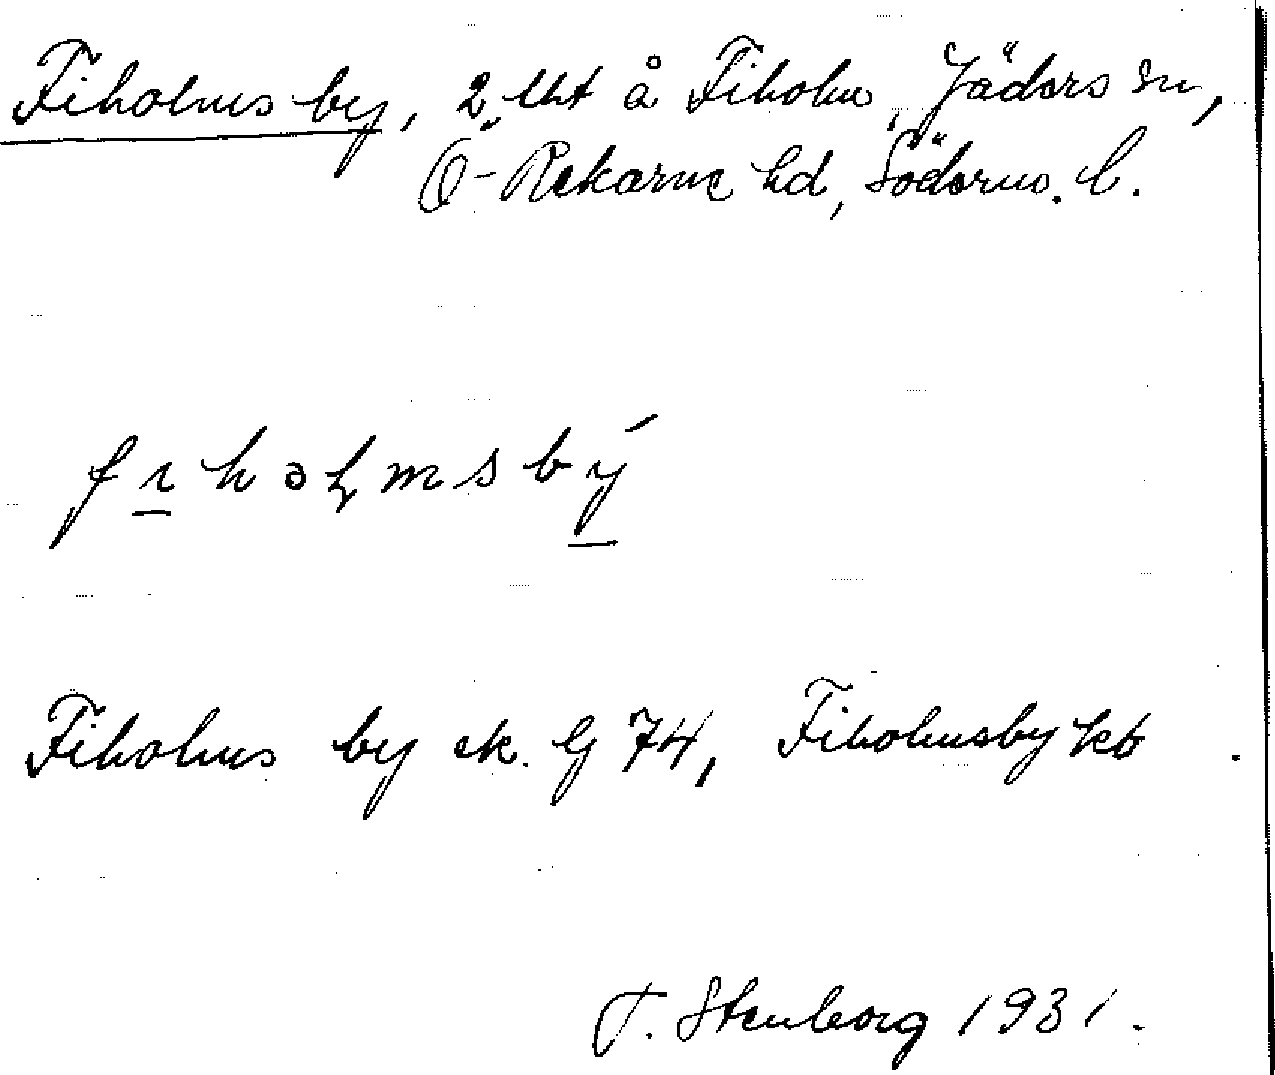 Fiholms by, 2 lht å Fiholm, Jäders sn,
Ö-Rekarne hd, Söderm. l.
fɪhəɭmsbý
Fiholms by ek. G 74, Fiholmsby kb.
T. Stenborg 1931.